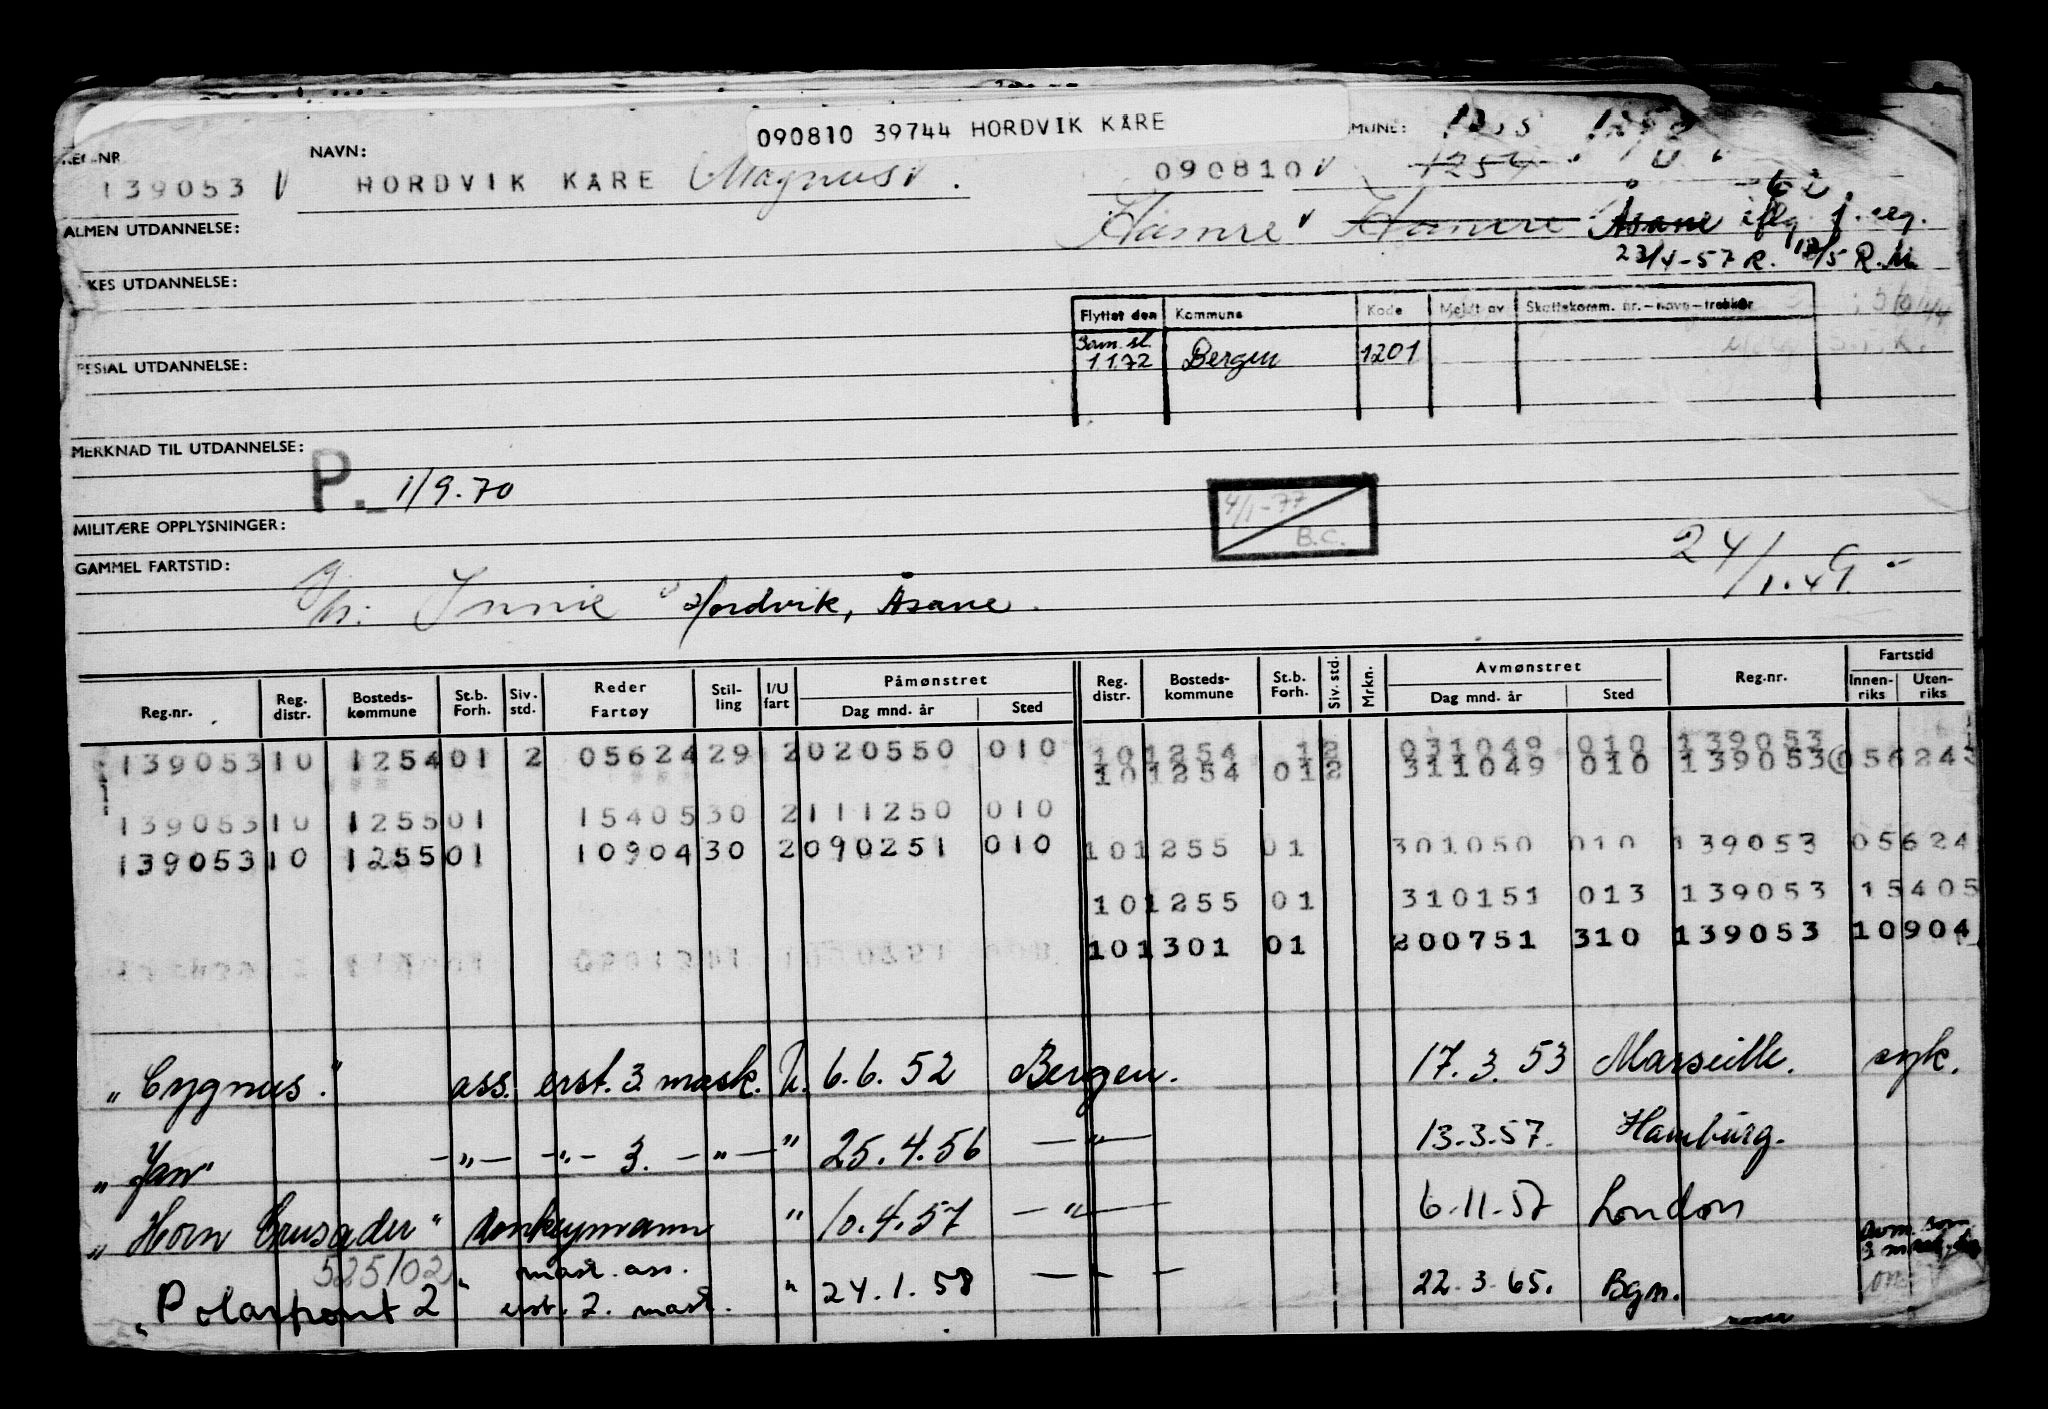 090810 39744 HORDVIK KÅRE
MUNE: 1255
NAVN:
139053 HORDVIK KÅRE Magnus 090810 1254
Hamre Hamre Åsane iflg. f. reg.
23/4-57 R. R.M.
ALMEN UTDANNELSE:
KES UTDANNELSE:
Flyttet den Kommune Kode Meldt av Skattekomm. nr.-navn-trekkpr
1.1.72 Bergen 1201
ESIAL UTDANNELSE:
MERKNAD TIL UTDANNELSE:
P. 1/9.70
4/1-77
B.C.
MILITÆRE OPPLYSNINGER:
24/1.49.-
GAMMEL FARTSTID:
Hordvik, Åsane.
Reg.nr. Reg. distr. Bosteds-kommune St.b. Forh. Siv. std. Reder Fartøy Stil-ling I/U fart Påmønstret Dag mnd. år Sted Reg. distr. Bosteds-kommune St.b. Forh. Siv. std. Mrkn. Avmønstret Dag mnd. år Sted Reg.nr. Fartstid Innen-riks Uten-riks
139053 10 1254 01 2 05624 29 2 020550 010 10 1254 12 031049 010 139053
10 1254 01 2 311049 010 139053 056243
139053 10 1255 01 15405 30 2 111250 010
139053 10 1255 01 10904 30 2 090251 010 10 1255 01 301050 010 139053 05624
10 1255 01 310151 013 139053 15405
10 1301 01 200751 310 139053 10904
"Cygnus." ass. erst. 3. mask. U. 6.6.52 Bergen. 17.3.53 Marseille. syk.
"Jan" -"- -"- 3. -"- " 25.4.56 -"- 13.3.57. Hamburg.
"Horn Crusader" Donkeymann " 10.4.57 -"- 6.11.57 London
525102 mask. ass.
"Polarpont 2" erst. 2. mask. " 24.1.58 -"- 22.3.65. Bgn.